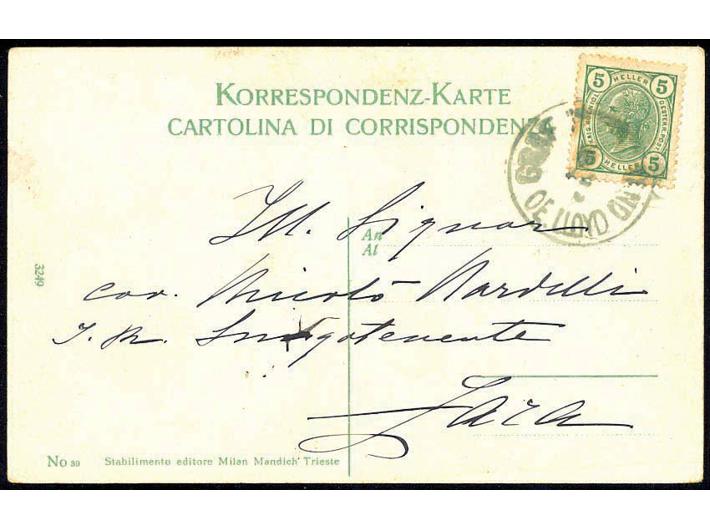 KORRESPONDENZ-KARTE
CARTOLINA DI CORRISPONDENZA
5 HELLER 5
5 HELLER 5
OE LLOYD
Ill. Signor
An
Al
cav. Nicolò Nardelli
I. R. Luogotenente
Zara
3249
No 39 Stabilimento editore Milan Mandich' Trieste